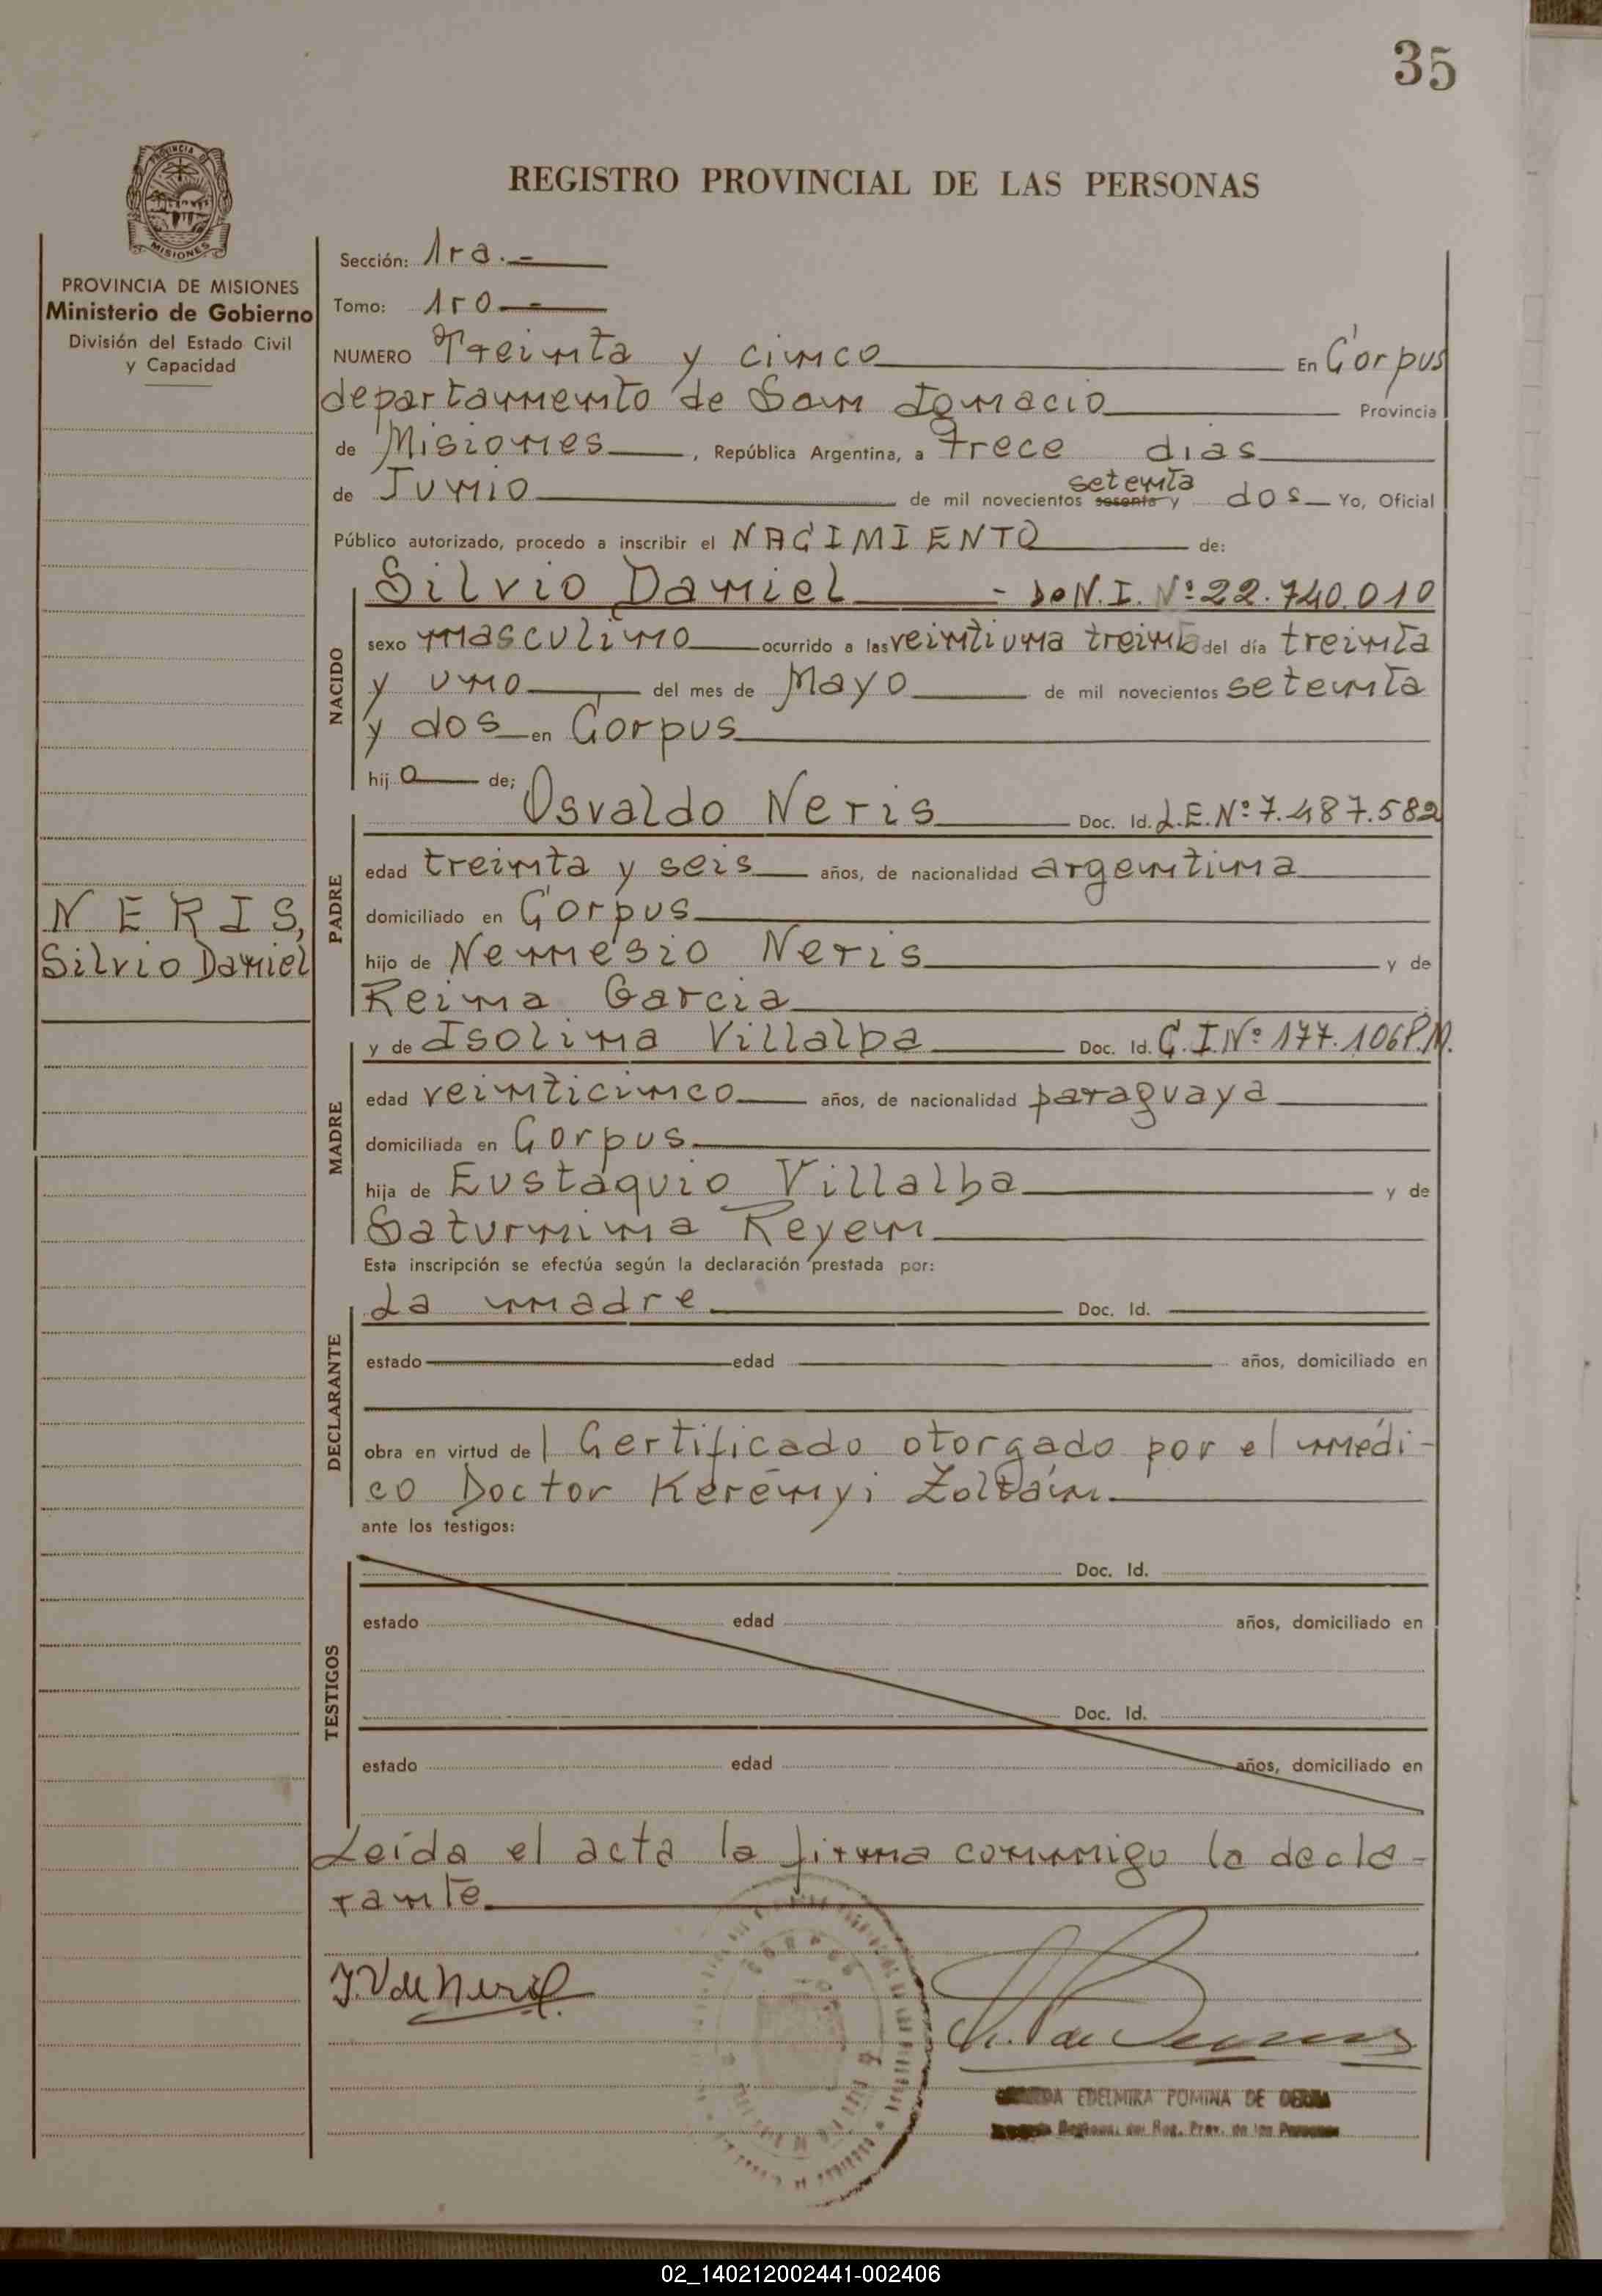 35
REGISTRO PROVINCIAL DE LAS PERSONAS
PROVINCIA DE MISIONES
Ministerio de Gobierno
División del Estado Civil
y Capacidad
NERIS,
Silvio Daniel
Sección: 1ra.-
Tomo: 1ro-
NUMERO Treinta y cinco En Corpus
departamento de San Ignacio Provincia
de Misiones, República Argentina, a trece dias
de Junio de mil novecientos sesenta y setenta dos Yo, Oficial
Público autorizado, procedo a inscribir el NACIMIENTO de:
NACIDO
Silvio Daniel - D.N.I. Nº 22.740.010
sexo masculino ocurrido a las veintiuna treinta del día treinta
y uno del mes de Mayo de mil novecientos setenta
y dos en Corpus
hijo de;
PADRE
Osvaldo Neris Doc. Id. L.E. Nº 7.487.582
edad treinta y seis años, de nacionalidad argentina
domiciliado en Corpus
hijo de Nemesio Neris y de
Reina Garcia
MADRE
y de Isolina Villalba Doc. Id. C.I Nº 177.106 P.M.
edad veinticinco años, de nacionalidad paraguaya
domiciliada en Corpus
hija de Eustaquio Villalba y de
Saturnina Reyen
Esta inscripción se efectúa según la declaración prestada por:
DECLARANTE
La madre Doc. Id.
estado edad años, domiciliado en
obra en virtud del Certificado otorgado por el médi-
co Doctor Kerényi Zoltán
ante los testigos:
TESTIGOS
Doc. Id.
estado edad años, domiciliado en
Doc. Id.
estado edad años, domiciliado en
Leída el acta la firma conmigo la decla-
rante
I. V de Neris
EDELMIRA POMINA DE
Reg. Prov. de las Personas
02_140212002441-002406